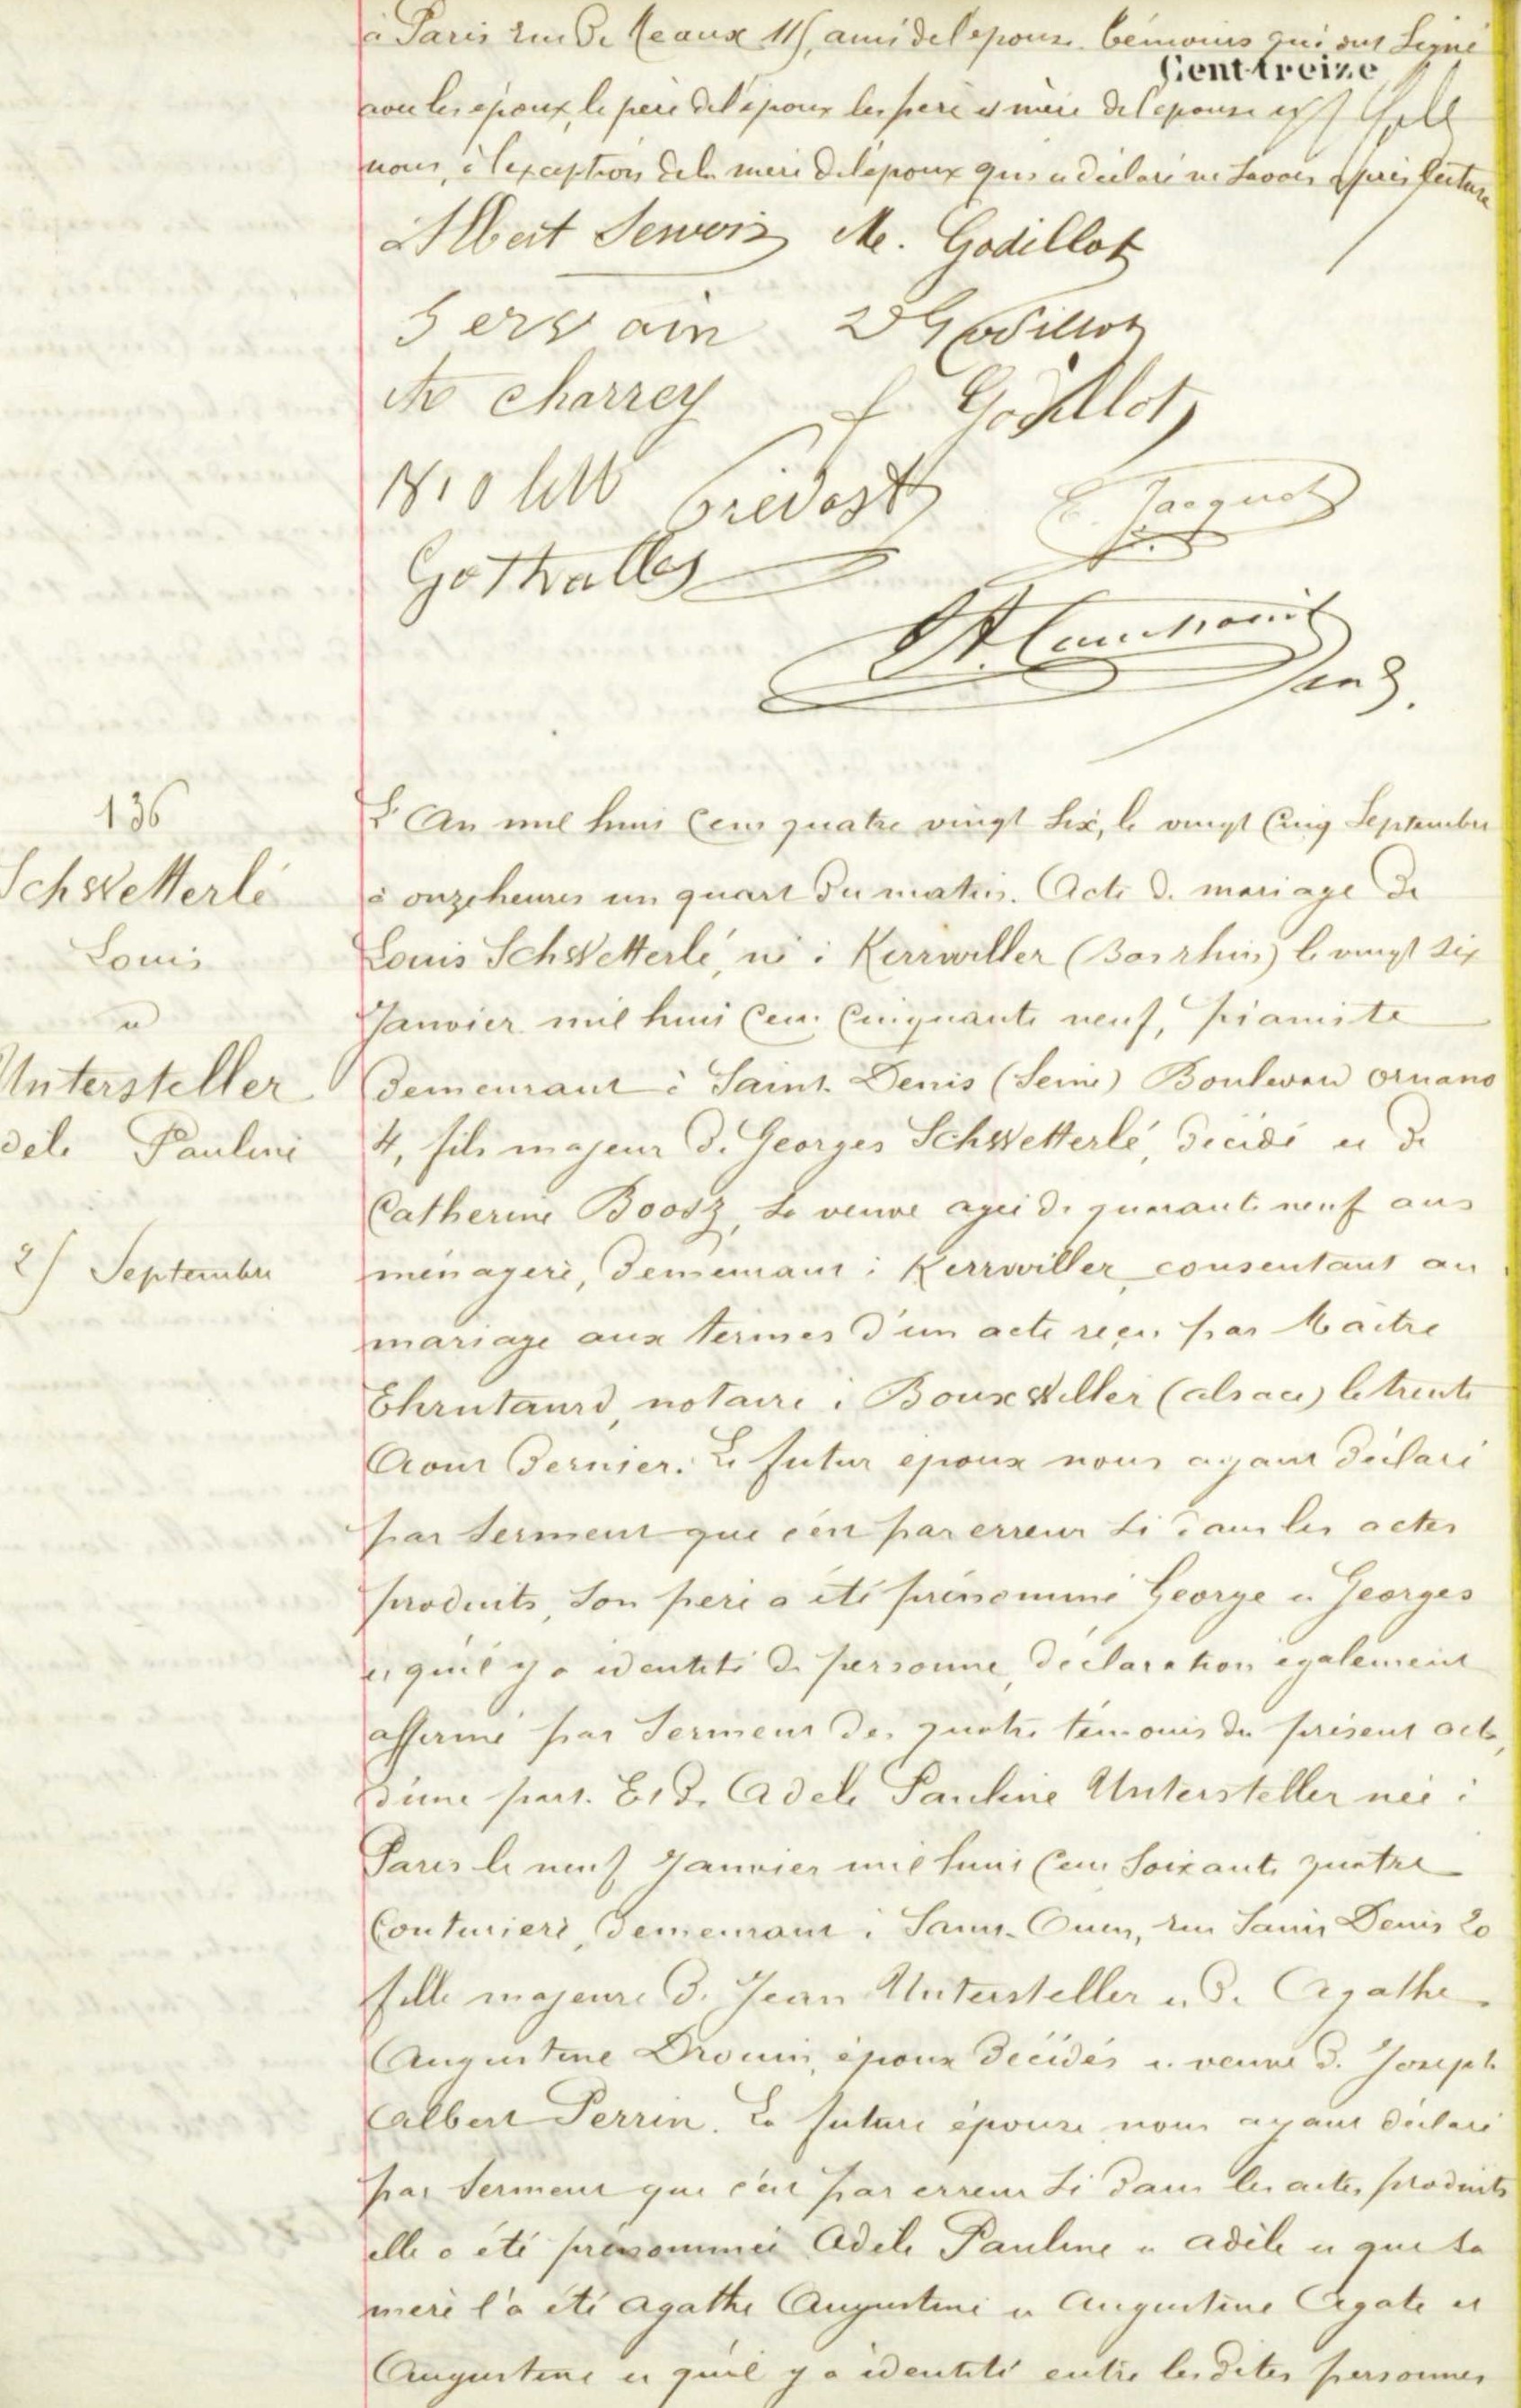 à Paris rue De Meaux 115, ami de l'épouse. témoins qui ont signé
Cent-treize
avec les époux, le père de l'époux les père et mère de l'épouse et
nous, à l'exception de la mère de l'époux qui a déclaré ne savoir après lecture
Albert Servoin M. Godillot
Servain Godillot
Charrey f. Godillot
Violett Prévost E. Jacquot
Gothalles
136
Schwetterlé
Louis
et
Untersteller
dèle Pauline
25 Septembre
L'An mil huit cent quatre vingt six, le vingt cinq Septembre
à onze heures un quart du matin. Acte de mariage de
Louis Schwetterlé, né à Kerrwiller (Bas rhin) le vingt six
Janvier mil huit cent cinquante neuf, pianiste
demeurant à Saint-Denis (Seine) Boulevard ornano
4, fils majeur de Georges Schwetterlé, décédé et de
Catherine Boosz, sa veuve agée de quarante neuf ans
ménagère, demeurant à Kerrwiller consentant au
mariage aux termes d'un acte reçu par Maitre
Ehrutaurd, notaire à Bouxwiller (alsace) le trente
Aout dernier. Le futur époux nous ayant déclaré
par serment que c'est par erreur si dans les actes
produits, son père a été prénommé George et Georges
et qu'il y a identité de personne, déclaration également
affirmé par serment des quatre témoins du présent acte,
d'une part. Et de Adèle Pauline Untersteller née à
Paris le neuf Janvier mil huit cent soixante quatre
Couturière, demeurant à Saint-Ouen, rue Saint Denis 20
fille majeure de Jean Untersteller et de Agathe
Augustine Drouin, époux décédés et veuve de Joseph
Albert Perrin. La future épouse nous ayant déclaré
par serment que c'est par erreur si dans les actes produits
elle a été prénommée Adèle Pauline et adèle et que sa
mère l'a été agathe Augustine et Augustine Agate et
Augustine et qu'il y a identité entre lesdites personnes